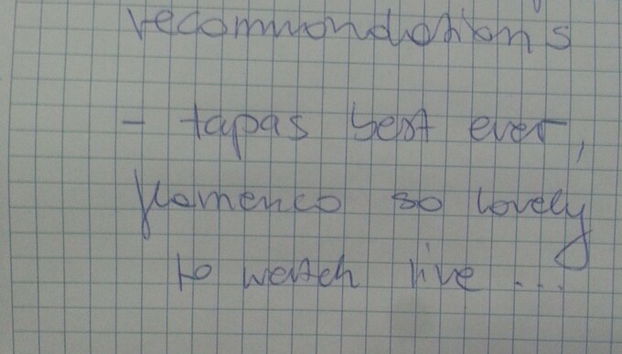 recommondations
- tapas best ever,
flamenco so lovely
to watch live ...